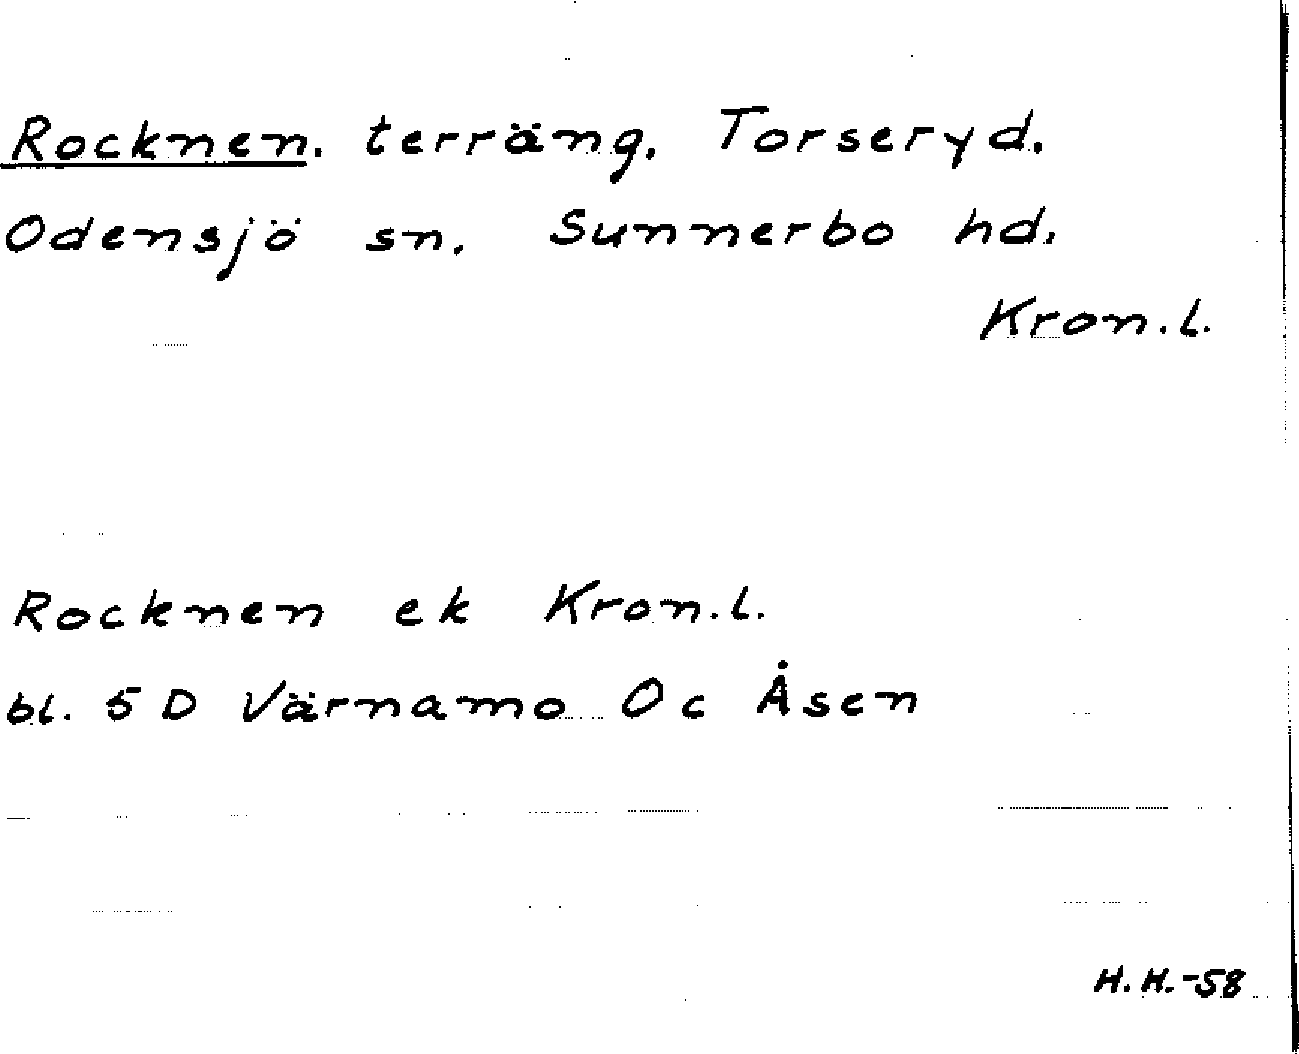 Rocknen. terräng, Torseryd.
Odensjö sn. Sunnerbo hd.
Kron.l.
Rocknen ek Kron.l.
bl. 5 D Värnamo Oc Åsen
H.H.-58